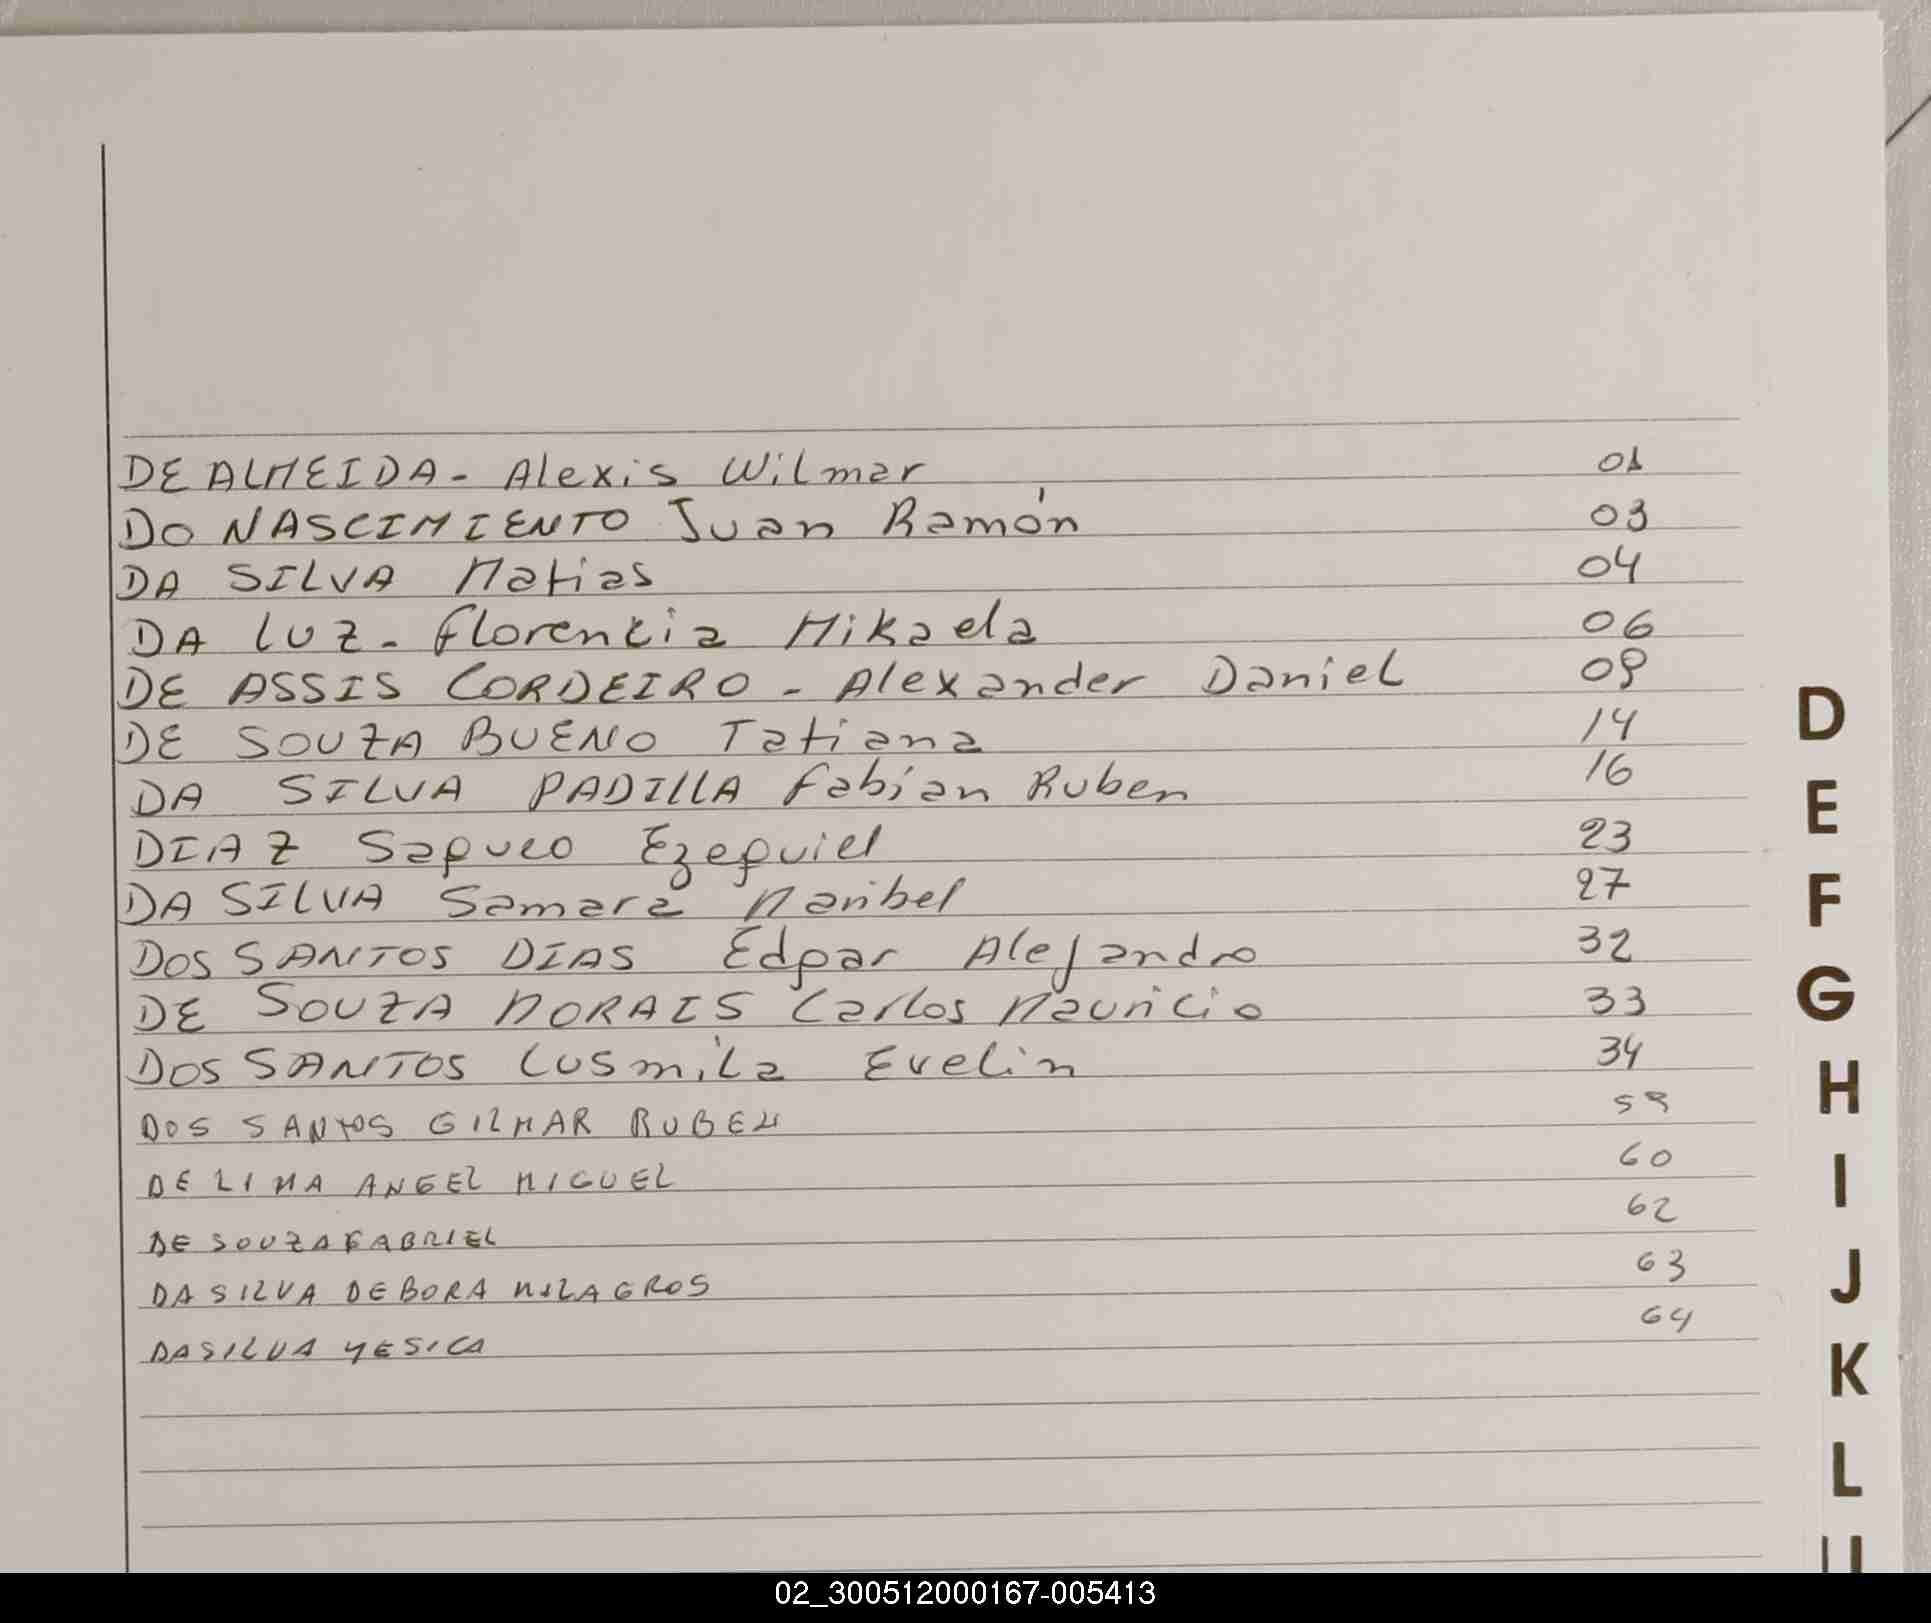 DE ALMEIDA - Alexis Wilmar 01
DO NASCIMIENTO Juan Ramón 03
DA SILVA Matias 04
DA LUZ - Florencia Mikaela 06
DE ASSIS CORDEIRO - Alexander Daniel 09
DE SOUZA BUENO Tatiana 14
DA SILVA PADILLA Fabian Ruben 16
DIAZ Ezequiel 23
DA SILVA Samara Maribel 27
DOS SANTOS DIAS Edgar Alejandro 32
DE SOUZA MORAIS Carlos Mauricio 33
DOS SANTOS Lusmila Evelin 34
DOS SANTOS GILMAR RUBEN 59
DE LIMA ANGEL MIGUEL 60
DE SOUZA FABRIEL 62
DA SILVA DEBORA MILAGROS 63
DA SILVA YESICA 64
D
E
F
G
H
I
J
K
L
02_300512000167-005413